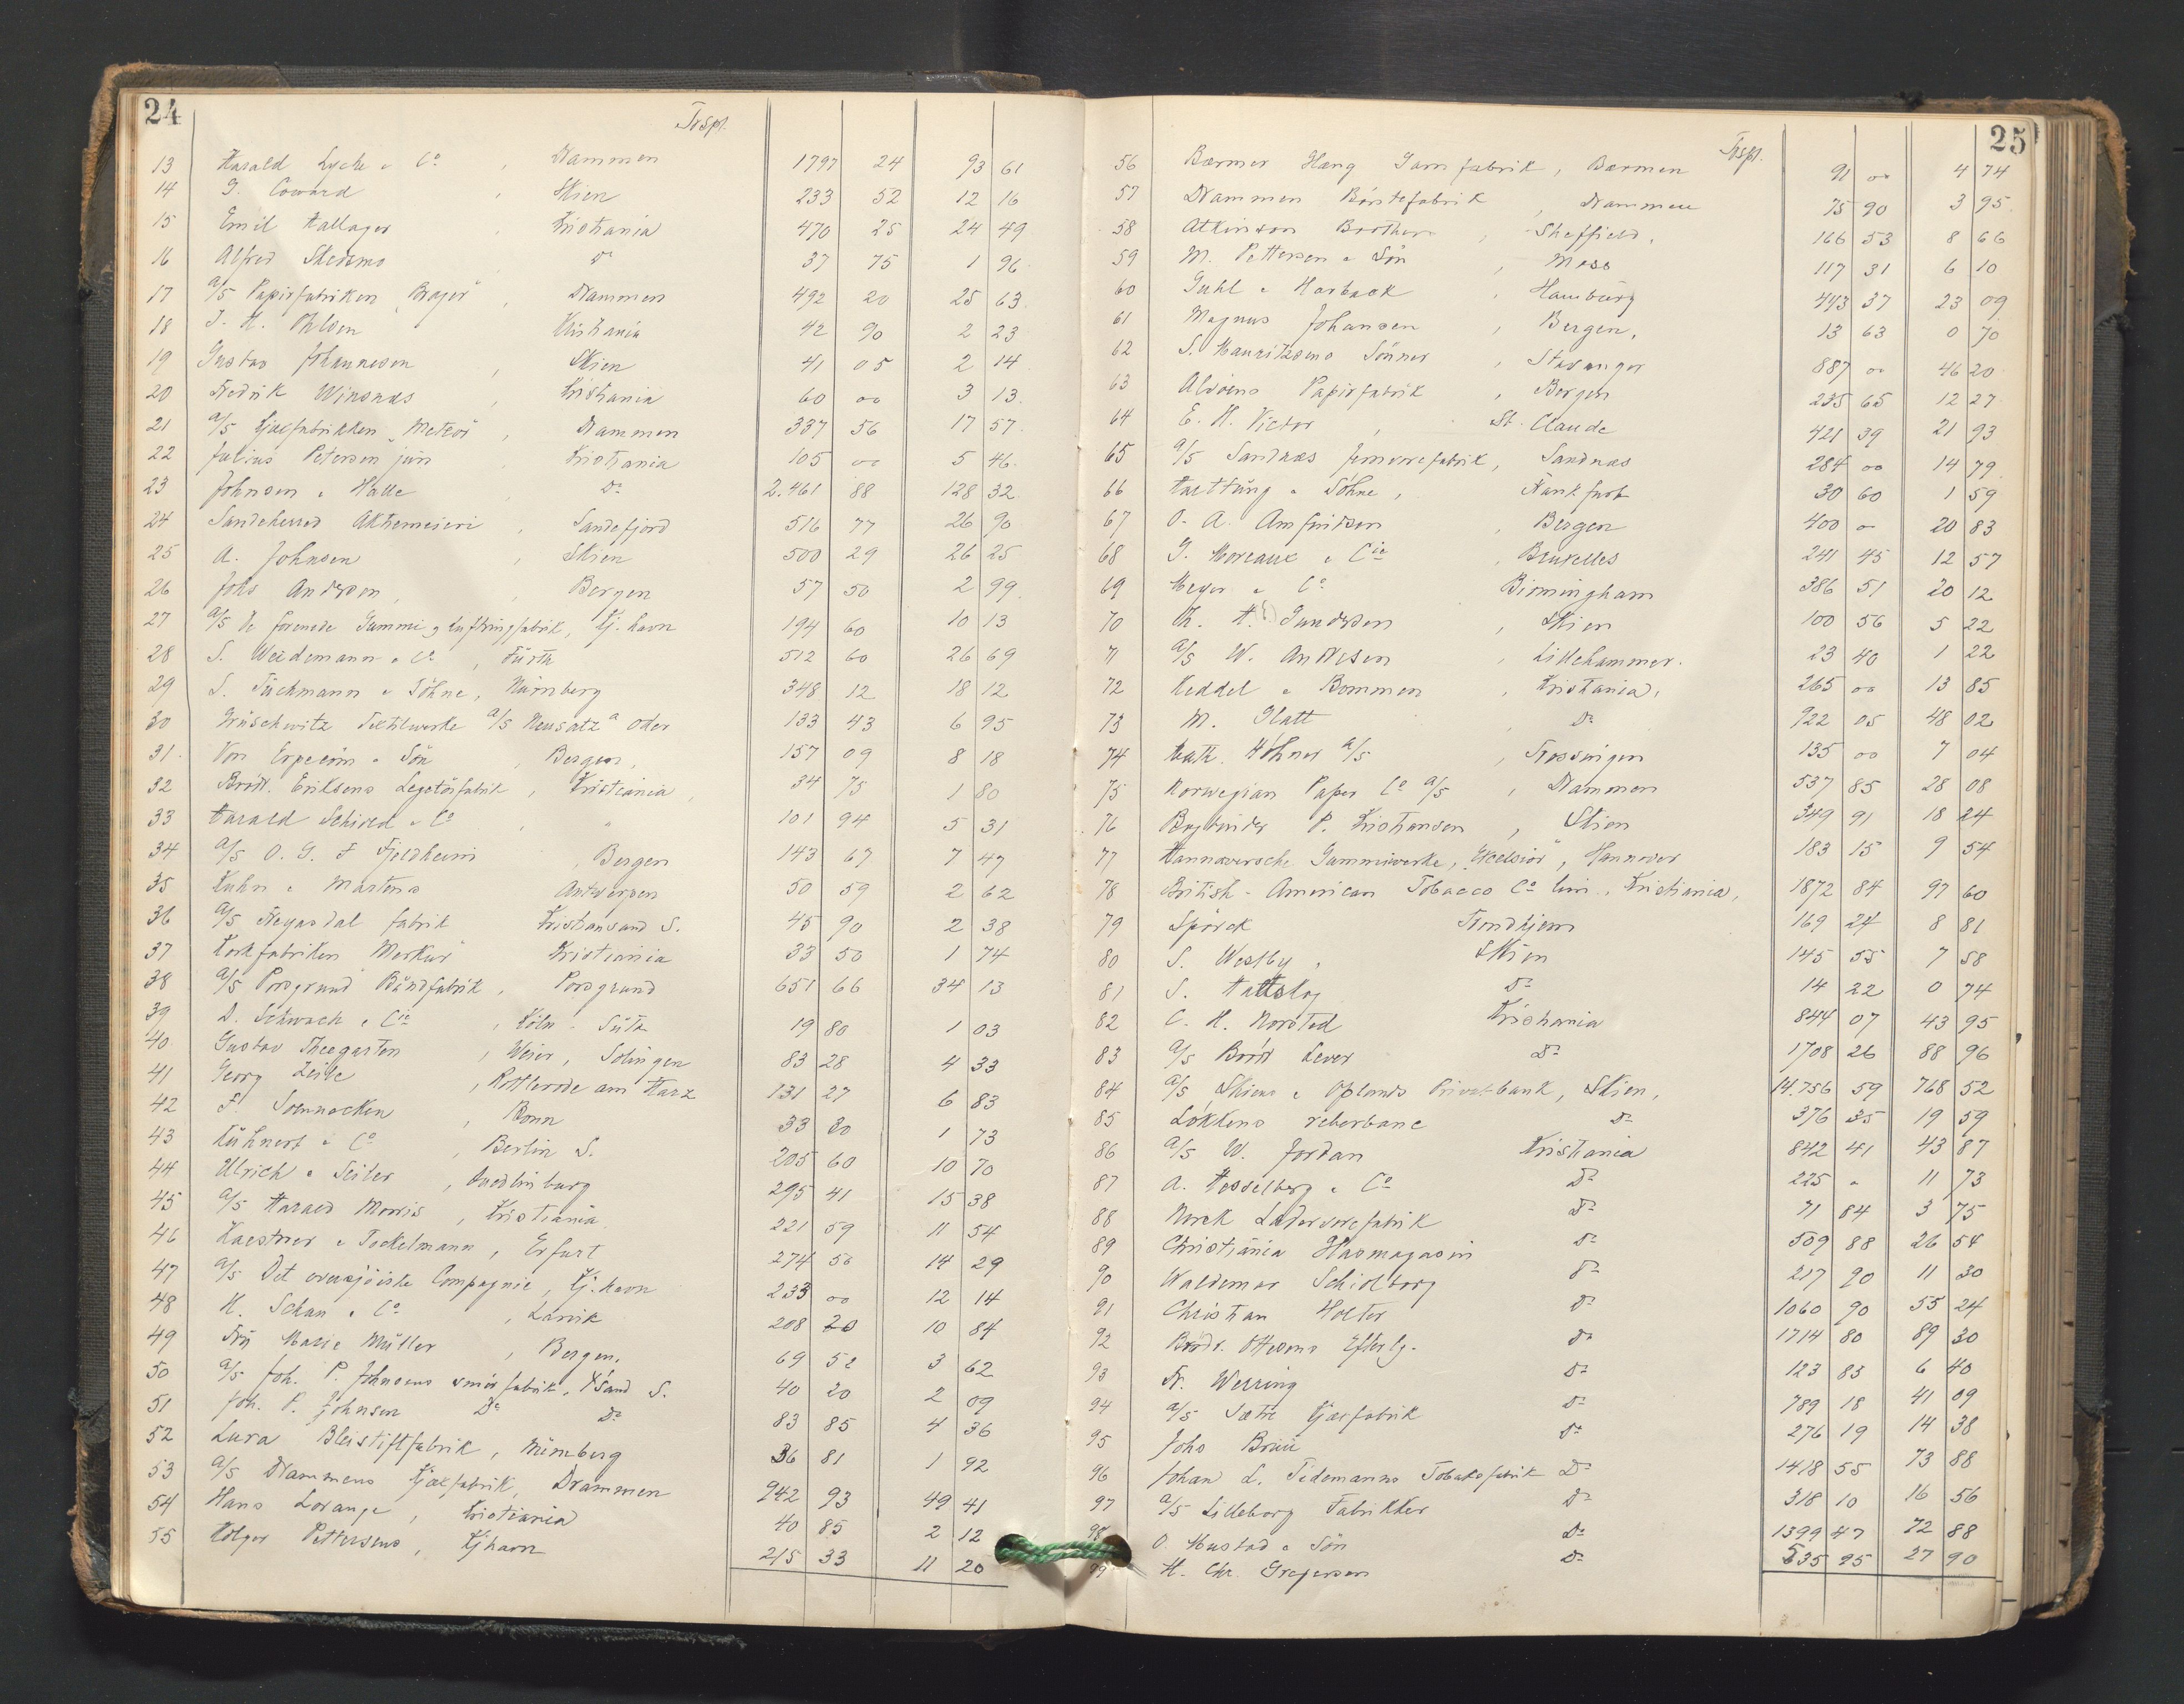 24
Trspt.
13 Harald Lyche & Co, Drammen 1797 24 93 61
14 G. Coward, Skien 233 52 12 16
15 Emil Hallager, Kristiania 470 25 24 49
16 Alfred Skedsmo Do 37 75 1 96
17 A/S Papirfabriken "Brager", Drammen 492 20 25 63
18 J. H. Kristiania 42 90 2 23
19 Gustav Johannesen, Skien 41 05 2 14
20 Fredrik Winsnæs, Kristiania 60 00 3 13
21 A/S Kjæxfabrikken "Meteor", Drammen 337 56 17 57
22 Julius Petersen jun, Kristiania 105 00 5 46
23 Johnsen & Halle, Do 2.461 88 128 32
24 Sandeherred Aktiemeieri, Sandefjord 516 77 26 90
25 A. Johnsen, Skien 500 29 26 25
26 Johs Andersen, Bergen 57 50 2 99
27 A/S De forenede Gummi & Luftringfabrik, Kj.havn 194 60 10 13
28 S. Weidemann & Co, Fürth 512 60 26 69
29 S. & Söhne, Nürnberg 348 12 18 12
30 Grüschwitz Textilwerke A/S Neusatz a Oder 133 43 6 95
31 Von Erpecom & Sön, Bergen, 157 09 8 18
32 Brödr. Eriksens Legetöifabrik, Kristiania, 34 75 1 80
33 Harald Schiold & Co, " 101 94 5 31
34 A/S O. G. F Fjeldheim, Bergen 143 67 7 47
35 Kuhn & Martens Antwerpen 50 59 2 62
36 A/S Fregasdal fabrik Kristiansand S. 45 90 2 38
37 Korkfabriken Merkur Kristiania 33 50 1 74
38 A/S Porsgrund Båndfabrik, Porsgrund 651 66 34 13
39 D. Schwach & Cie, Köln - 19 80 1 03
40 Gustav Theegarten, Weier, Solingen 83 28 4 33
41 Georg Zeile, Rottlerode am Harz 131 27 6 83
42 F. Soennecken, Bonn 33 20 1 73
43 Kühnert & Co, Berlin S. 205 60 10 70
44 Ulrich & Seiler, Quedlinburg 295 41 15 38
45 A/S Harald Morris, Kristiania 221 59 11 54
46 Kaestner & Tockelmann, Erfurt 274 50 14 29
47 A/S Det oversjöiske Compagnie, Kj.havn 233 00 12 14
48 H. Schau & Co, Larvik 208 20 10 84
49 Frk Marie Müller, Bergen. 69 52 3 62
50 A/S Joh. P. Johnsens smörfabrik, Kr.sand S. 40 20 2 09
51 Joh. P. Johnsen Do Do 83 85 4 36
52 Lura Bleistiftfabrik, Nürnberg 36 81 1 92
53 A/S Drammens Kjæxfabrik, Drammen 942 93 49 41
54 Hans Lorange, Kristiania 40 85 2 12
55 Holger Pettersens, Kjhavn 215 33 11 20
25
Trspt.
56 Barmer Hæng Garnfabrik, Barmen 91 00 4 74
57 Drammen Börstefabrik, Drammen 75 90 3 95
58 Atkinson Brothers, Sheffield, 166 53 8 66
59 M. Petterson & Sön, Moss 117 31 6 10
60 Guhl & Harbeck, Hamburg 443 37 23 09
61 Magnus Johansen, Bergen, 13 63 0 70
62 S. Mauritzens Sönner, Stavanger 887 00 46 20
63 Alvöens Papirfabrik, Bergen 235 65 12 27
64 E. H. Victor, St. Claude 421 39 21 93
65 A/S Sandnæs Jernvarefabrik, Sandnæs 284 00 14 79
66 Harttung & Söhne, Frankfurt 30 60 1 59
67 O. A. Amfindsen, Bergen 400 00 20 83
68 G. Moreaux & Cie, Bruxelles 241 45 12 57
69 Meyer & Co Birmingham 386 51 20 12
70 Th. H. Gundersen, Skien 100 56 5 22
71 A/S W. Andresen, Lillehammer. 23 40 1 22
72 Keddel & Bommen, Kristiania, 265 00 13 85
73 M. Glatt, Do 922 05 48 02
74 Math. Hohner A/S, Trossingen 135 00 7 04
75 Norwegian Paper Co A/S, Drammen 537 85 28 08
76 Bogbinder P. Kristiansen, Skien 349 91 18 24
77 Hannoversche Gummiwerke, "Excelsior", Hannover 183 15 9 54
78 British-American Tobacco Co lim., Kristiania, 1872 84 97 60
79 Spörck Trondhjem 169 24 8 81
80 S. Westby, Skien 145 55 7 58
81 S. Hattslag Do 14 22 0 74
82 C. H. Norsted Kristiania 844 07 43 95
83 A/S Brödr Lever Do 1708 26 88 96
84 A/S Skiens & Oplands Privatbank, Skien, 14.756 59 768 52
85 Lökkens reberbane Do 376 35 19 59
86 A/S W. Jordan Kristiania 842 41 43 87
87 A. Hesselberg & Co Do 225 " 11 73
88 Norsk Lædervarefabrik Do 71 84 3 75
89 Christiania Glasmagasin Do 509 88 26 54
90 Waldemar Schiolborg Do 217 90 11 30
91 Christian Holter Do 1060 90 55 24
92 Brödr. Ottesens Efterlg. Do 1714 80 89 30
93 Fr. Werring Do 123 83 6 40
94 A/S Sætre Kjæxfabrik Do 789 18 41 09
95 Johs Do 276 19 14 38
96 Johan L. Tidemanns Tobaksfabrik Do 1418 55 73 88
97 A/S Lilleborg Fabrikker Do 318 10 16 56
98 O. Mustad & Sön Do 1399 47 72 88
99 H. Chr. Gregersen Do 535 95 27 90